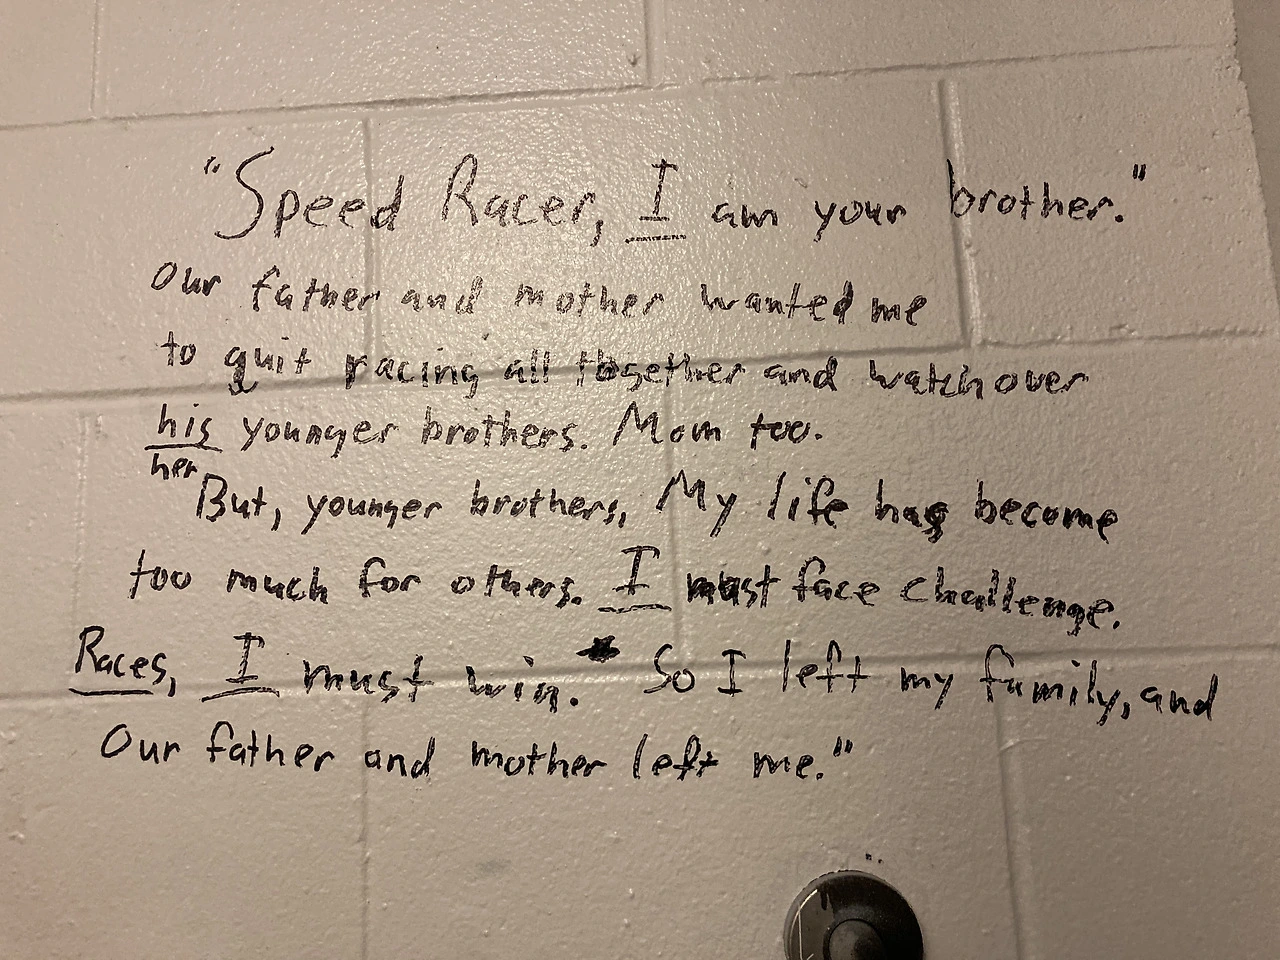 "Speed Racer, I am your brother."
Our father and mother wanted me
to quit racing all together and watch over
his younger brothers. Mom too.
her
But, younger brothers, My life has become
too much for others. I must face challenge.
Races, I must win. So I left my family, and
Our father and mother left me."